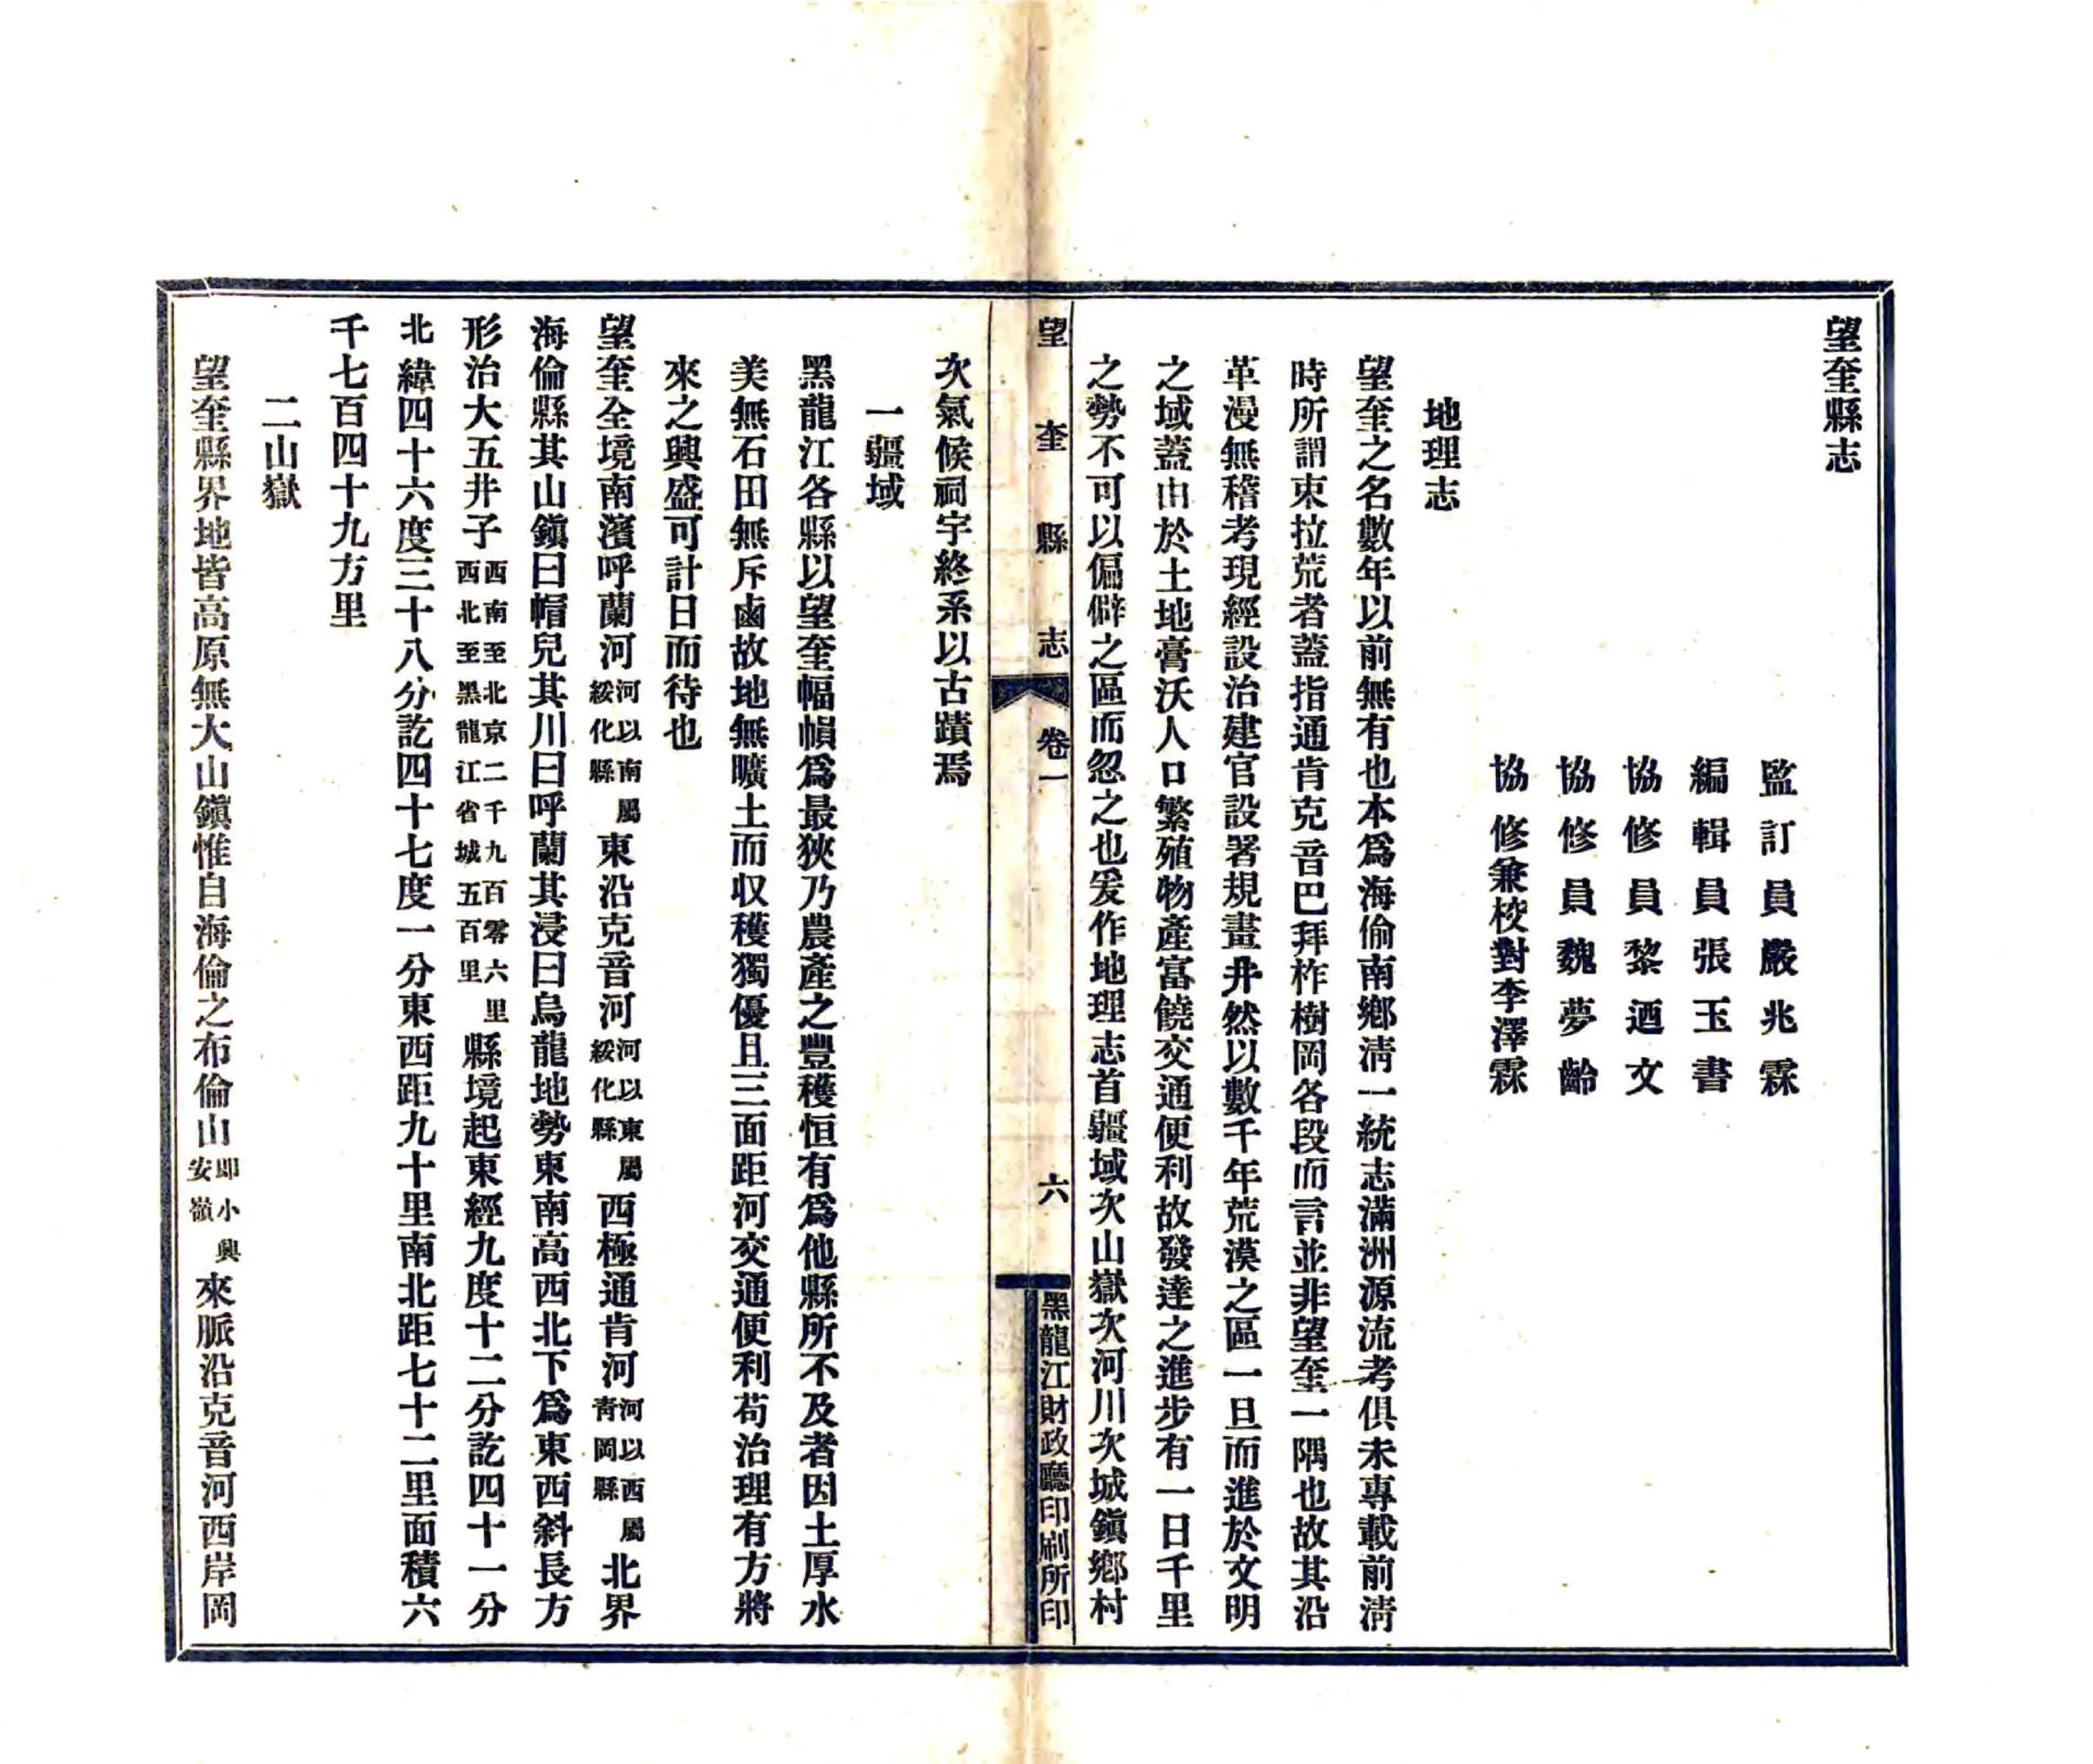 望奎縣志
監訂員嚴兆霖
編輯員張玉書
協修員黎迺文
協修員魏夢齡
協修兼校對李澤霖
地理志
望奎之名數年以前無有也本爲海倫南鄉淸一統志滿洲源流考俱未專載前淸
時所謂束拉荒者蓋指通肯克音巴拜柞樹岡各段而言並非望奎一隅也故其沿
革漫無稽考現經設治建官設署規畫井然以數千年荒漠之區一旦而進於文明
之域蓋由於土地膏沃人口繁殖物產富饒交通便利故發達之進步有一日千里
之勢不可以偏僻之區而忽之也爰作地理志首疆域次山嶽次河川次城鎭鄉村
望奎縣志 卷一 六 黑龍江財政廳印刷所印
次氣候祠宇終系以古蹟焉
一疆域
黑龍江各縣以望奎幅幀爲最狹乃農產之豐穫恒有爲他縣所不及者因土厚水
美無石田無斥鹵故地無曠土而収穫獨優且三面距河交通便利苟治理有方將
來之興盛可計日而待也
望奎全境南濱呼蘭河河以南屬綏化縣東沿克音河河以東屬綏化縣西極通肯河河以西屬靑岡縣北界
海倫縣其山鎭曰帽兒其川曰呼蘭其浸曰烏龍地勢東南高西北下爲東西斜長方
形治大五井子西南至北京二千九百零六里西北至黑龍江省城五百里縣境起東經九度十二分訖四十一分
北緯四十六度三十八分訖四十七度一分東西距九十里南北距七十二里面積六
千七百四十九方里
二山嶽
望奎縣界地皆高原無大山鎭惟自海倫之布倫山卽小興安嶺來脈沿克音河西岸岡